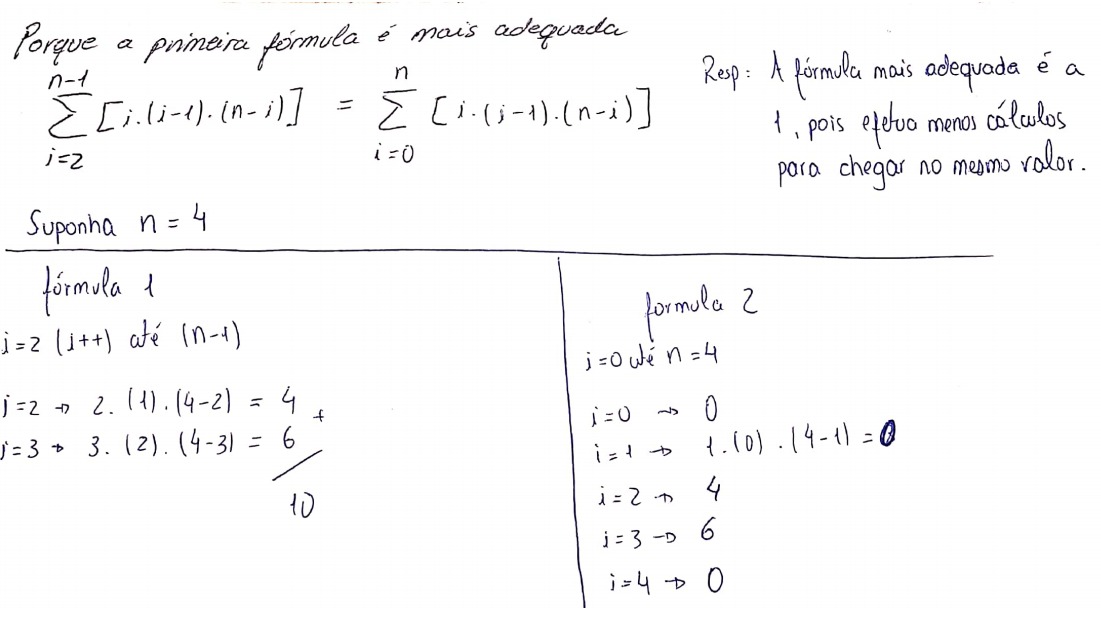 Porque a primeira fórmula é mais adequada
n-1
∑ [i.(i-1).(n-i)] = ∑ [i.(i-1).(n-i)]
i=2
n
i=0
Resp: A fórmula mais adequada é a
1, pois efetua menos cálculos
para chegar no mesmo valor.
Suponha n = 4
fórmula 1
i=2 (i++) até (n-1)
i=2 → 2.(1).(4-2) = 4 +
i=3 → 3.(2).(4-3) = 6
10
formula 2
i=0 até n=4
i=0 → 0
i=1 → 1.(0).(4-1)=0
i=2 → 4
i=3 → 6
i=4 → 0